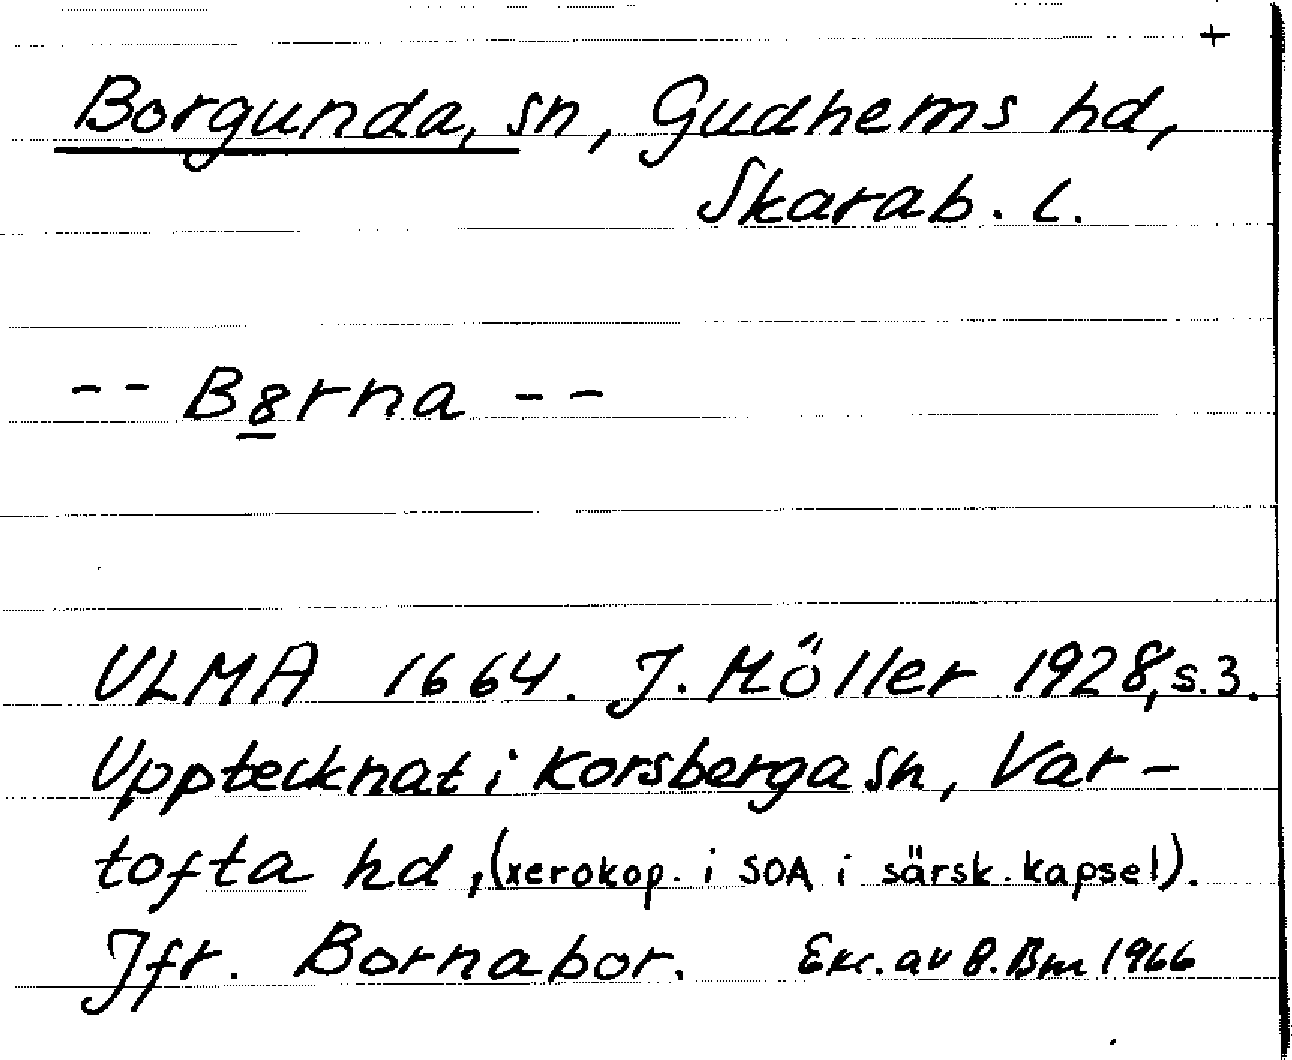 +
Borgunda, sn, Gudhems hd,
Skarab. l.
-- B8rna --
ULMA 1664. J. Möller 1928, s. 3.
Upptecknat i Korsberga sn, Var-
tofta hd, (xerokop. i SOA i särsk. kapsel).
Jfr. Bornabor. Exc. av B. Bm 1966